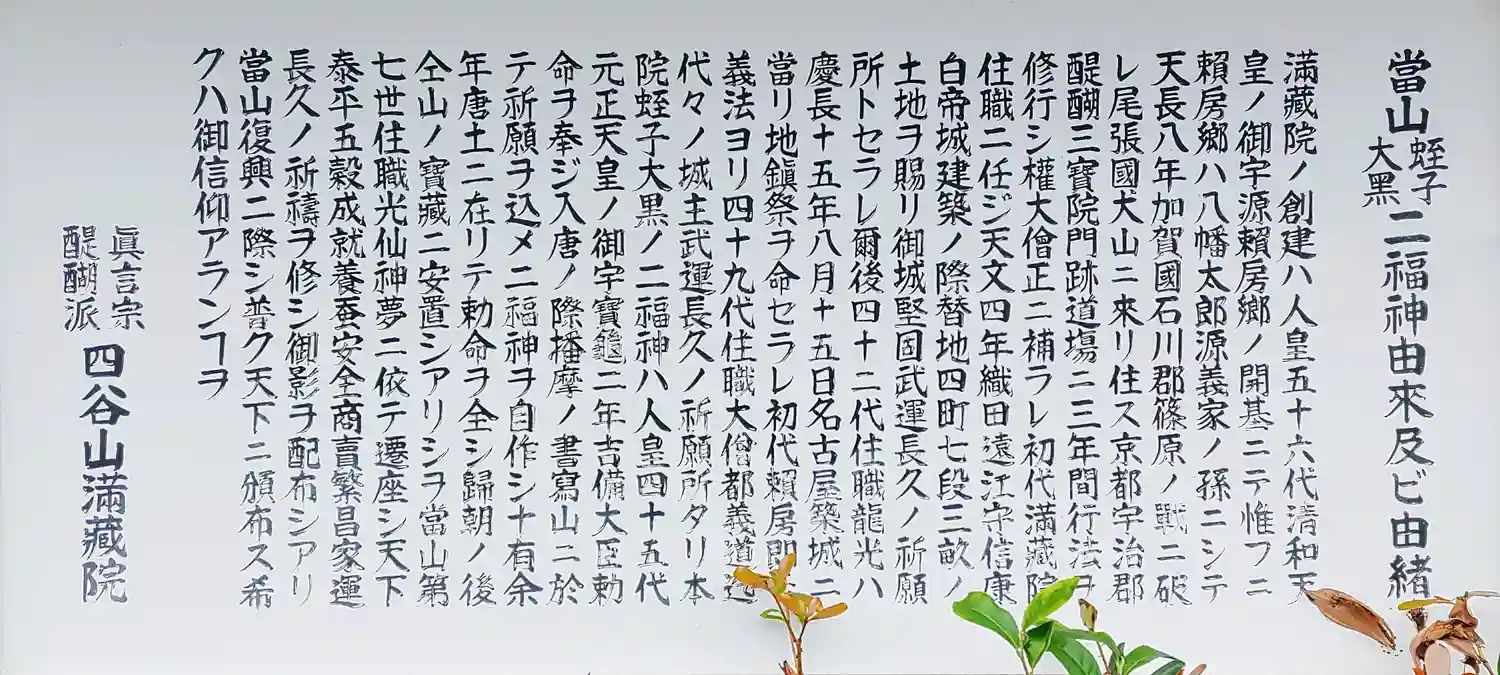 當山蛭子大黒二福神由來及ビ由緒
満藏院ノ創建ハ人皇五十六代清和天
皇ノ御宇源賴房鄉ノ開基ニテ惟フニ
賴房鄉ハ八幡太郎源義家ノ孫ニシテ
天長八年加賀國石川郡篠原ノ戰ニ破
レ尾張國犬山ニ來リ住ス京都宇治郡
醍醐三寶院門跡道場ニ三年間行法ヲ
修行シ權大僧正ニ補ラレ初代滿藏院
住職ニ任ジ天文四年織田遠江守信康
白帝城建築ノ際替地四町七段三畝ノ
土地ヲ賜リ御城堅固武運長久ノ祈願
所トセラレ爾後四十二代住職龍光ハ
慶長十五年八月十五日名古屋築城ニ
當リ地鎭祭ヲ命セラレ初代賴房即
義法ヨリ四十九代住職大僧都義道迄
代々ノ城主武運長久ノ祈願所タリ本
院蛭子大黒ノ二福神ハ人皇四十五代
元正天皇ノ御宇寶龜二年吉備大臣勅
命ヲ奉ジ入唐ノ際播摩ノ書寫山ニ於
テ祈願ヲ込メ二福神ヲ自作シ十有余
年唐土ニ在リテ勅命ヲ全シ歸朝ノ後
仝山ノ寶藏ニ安置シアリシヲ當山第
七世住職光仙神夢ニ依テ遷座シ天下
泰平五穀成就養蚕安全商賣繁昌家運
長久ノ祈禱ヲ修シ御影ヲ配布シアリ
當山復興ニ際シ普ク天下ニ頒布ス希
クハ御信仰アランコヲ
眞言宗醍醐派 四谷山滿藏院